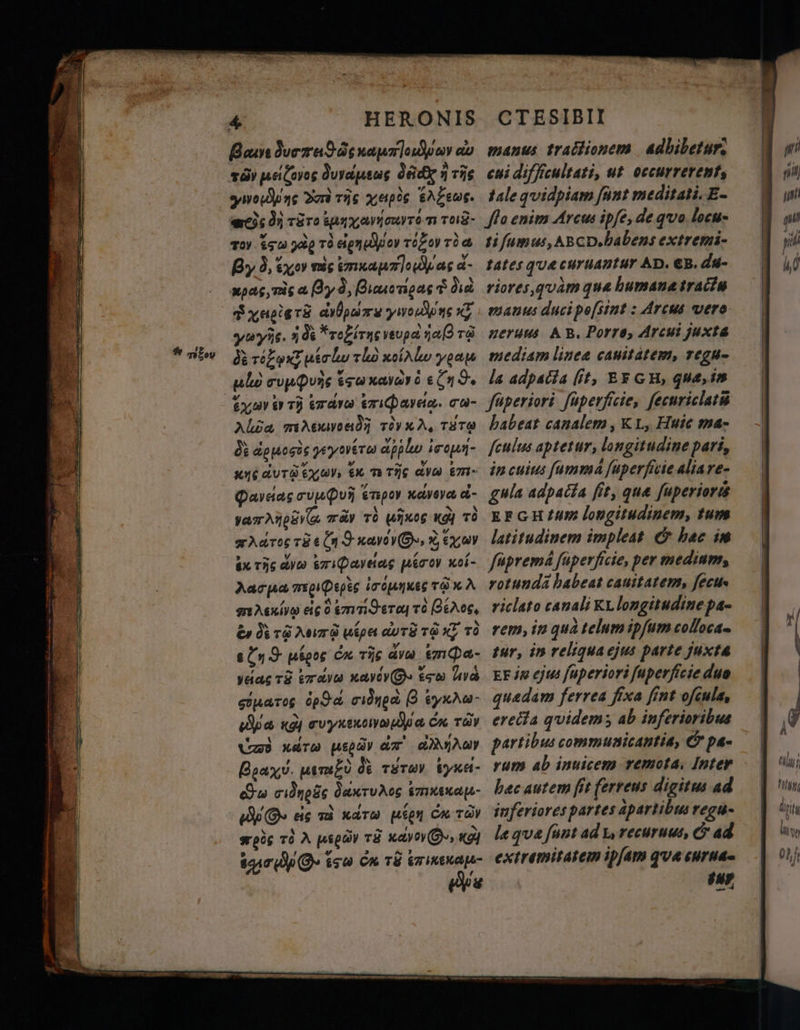 4 HERONIS
βαινε δυσπειθῶς καμπτομένων αὐ
τῶν μείζονος δυνάμεως δεῖσθαι ἢ τῆς
γινομένης ὑπὸ τῆς χειρὸς ἕλξεως.
πρὸς δὴ τοῦτο ἐμηχανήσαντό τι τοιοῦ-
τον. ἔστω γὰρ τὸ εἰρημένον τόξον τὸ α
βγδ, ἔχον τὰς ἐπικαμπτομένας ἄ-
κρας, τὰς α βγδ, βιαιοτέρας τῆς διὰ
τῆς χειρὸς τοῦ ἀνθρώπου γινομένης κατ
γωγῆς. ἡ δὲ *τοξίτης νευρὰ ἡ αβ τῷ
* τόξου
δὲ τόξῳ κατὰ μέσην τὴν κοίλην γραμ
μὴν συμφυὴς ἔστω κανὼν ὁ εζηθ,
ἔχων ἐν τῇ ἐπάνω ἐπιφανείᾳ. σω-
λῆνα πελεκινοειδῆ τὸν κλ, τούτῳ
δὲ ἁρμοστὸς γεγονέτω ἄρρην ἰσομή-
κης αὐτῷ ἔχων, ἔκ τι τῆς ἄνω ἐπι-
φανείας συμφυῆ ἕτερον κάνονα ἀ-
ναπληροῦντα πᾶν τὸ μῆκος καὶ τὸ
πλάτος τοῦ εζηθ κανόνος, καὶ ἔχων
ἐκ τῆς ἄνω ἐπιφανείας μέσον κοί-
λασμα περιφερὲς ἰσόμηκες τῷ κλ
πελεκίνῳ εἰς ὃ ἐπιτίθεται τὸ βέλος,
ἐν δὲ τῷ λοιπῷ μέρει αὐτοῦ τῷ κατὰ τὸ
εζηθ μέρος ἐκ τῆς ἄνω ἐπιφα-
νείας τοῦ ἐπάνω κανόνος ἔστω τινὰ
στόματος ὀρθὰ σιδηρᾶ β ἐγκλω-
μένα καὶ συγκεκοινωμένα ἐκ τῶν
ὑπὸ κάτω μερῶν ἀπ' ἀλλήλων
βραχύ. μεταξὺ δὲ τούτων ἐγκεί-
σθω σιδηροῦς δάκτυλος ἐπικεκαμ-
μένος εἰς τὰ κάτω μέρη ἐκ τῶν
πρὸς τὸ λ μερῶν τοῦ κάνονος, καὶ
ἐσχισμένος ἔστω ἐκ τοῦ ἐπικεκαμ-
μένου
CTESIBII
manus tractionem adhibetur,
cui difficultati, ut occurrerent,
tale quidpiam sunt meditati. E-
sto enim Arcus ipse, de quo locu-
ti sumus, ABCD. habens extremi-
tates quæ curuantur AD. CB. du-
riores, quàm quæ humana tractu
manus duci possint : Arcus vero
neruus AB. Porro, Arcui juxta
mediam linea cauitatem, regu-
la adpacta sit, EFGH, quæ, in
superiori superficie, securiclatũ
habeat canalem, KL, Huic ma-
sculus aptetur, longitudine pari,
in cuius summâ superficie alia re-
gula adpacta sit, quæ superioris
EFGH tum longitudinem, tum
latitudinem impleat & hæc in
supremâ superficie, per medium,
rotundã habeat cauitatem, secu-
riclato canali KL longitudine pa-
rem, in quâ telum ipsum colloca-
tur, in reliqua ejus parte juxta
EF in ejus superiori superficie duo
quædam ferrea fixa sint oscula,
erecta quidem; ab inferioribus
partibus communicantia, & pa-
rum ab inuicem remota. Inter
hæc autem sit ferreus digitus ad
inferiores partes àpartibus regu-
læ quæ sunt ad L, recuruus, & ad
extremitatem ipsam quæ curua-
tur,